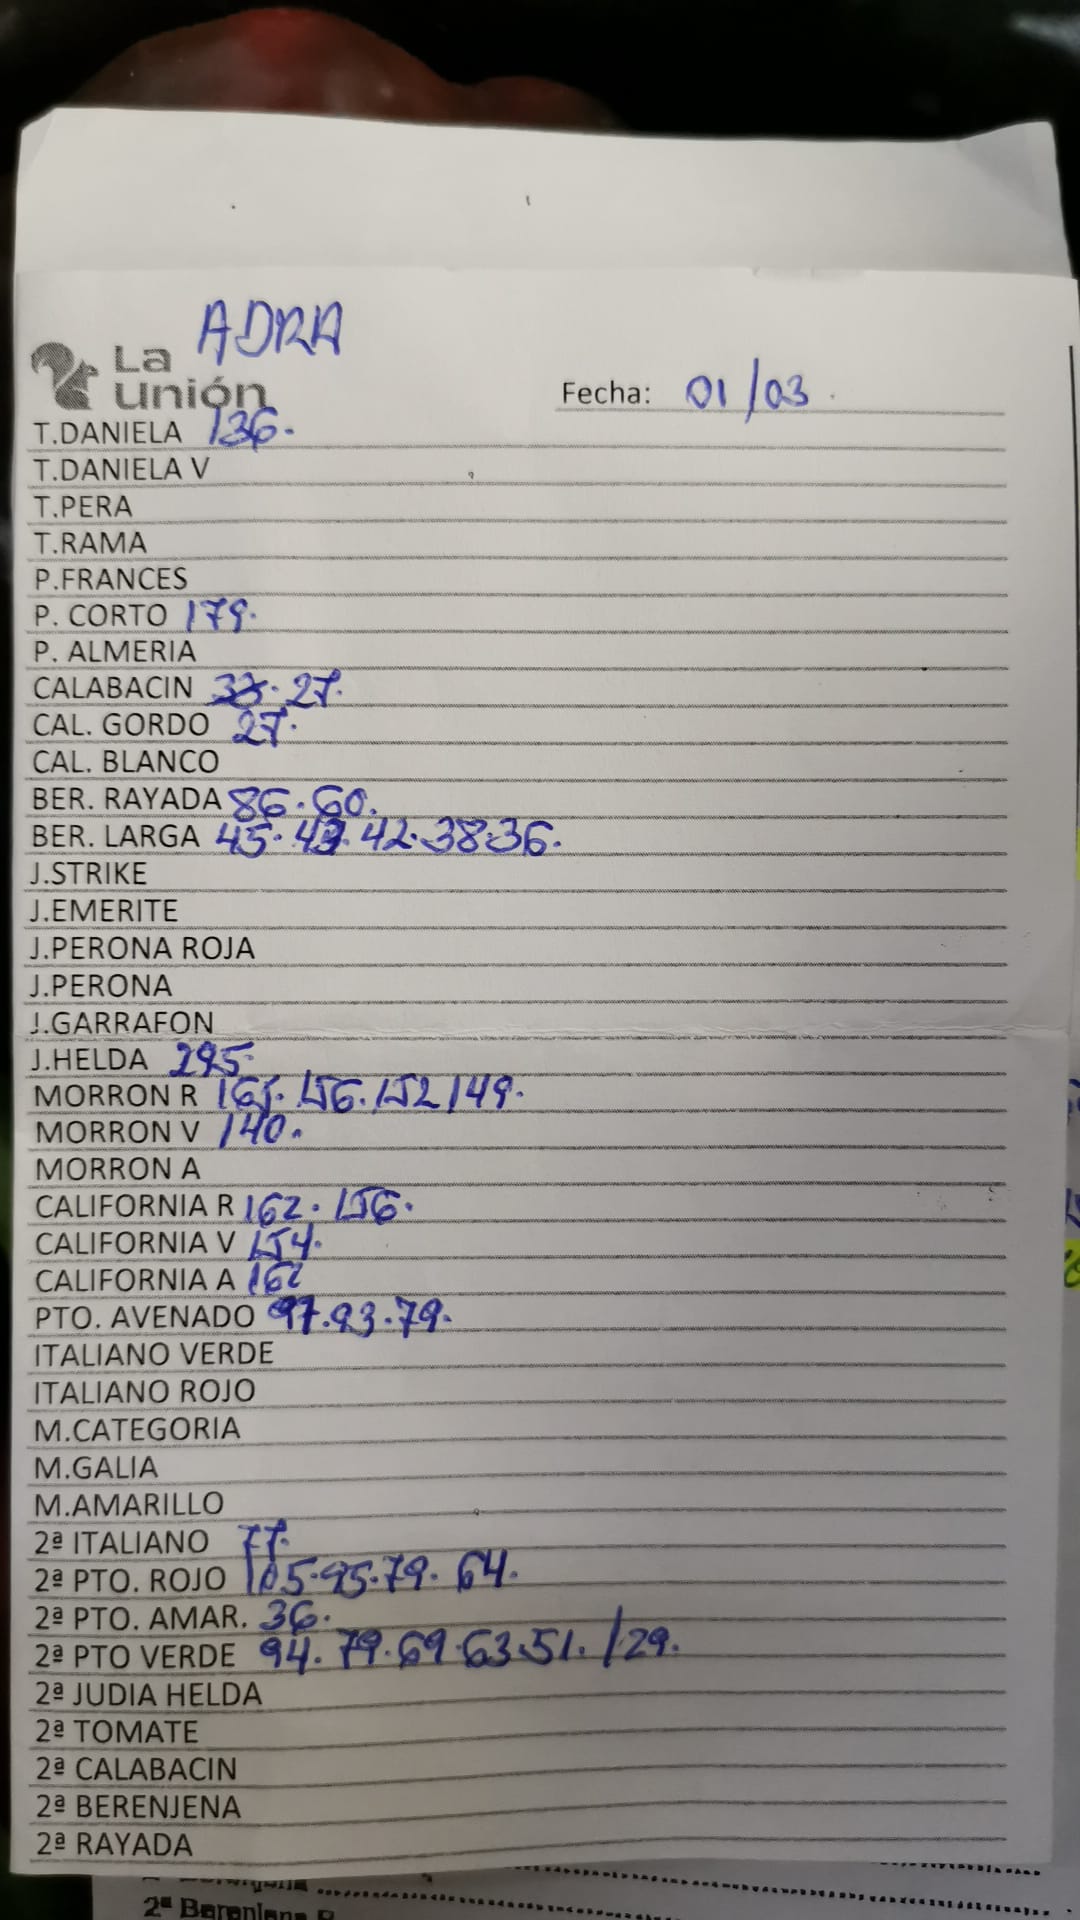 ADRA
La
Unión
Fecha: 01/03.
T.DANIELA 136.
T.DANIELA V
T.PERA
T.RAMA
P.FRANCES
P. CORTO 179.
P. ALMERIA
CALABACIN 33. 27.
CAL. GORDO 27.
CAL. BLANCO
BER. RAYADA 86. 60.
BER. LARGA 45. 43. 42. 38. 36.
J.STRIKE
J.EMERITE
J.PERONA ROJA
J.PERONA
J.GARRAFON
J.HELDA 295.
MORRON R 165. 156. 152 149.
MORRON V 140.
MORRON A
CALIFORNIA R 162. 156.
CALIFORNIA V 154.
CALIFORNIA A 162
PTO. AVENADO 97. 93. 79.
ITALIANO VERDE
ITALIANO ROJO
M.CATEGORIA
M.GALIA
M.AMARILLO
2ª ITALIANO 77.
2ª PTO. ROJO 105. 95. 79. 64.
2ª PTO. AMAR. 36.
2ª PTO VERDE 94. 79. 69. 63. 51. /29.
2ª JUDIA HELDA
2ª TOMATE
2ª CALABACIN
2ª BERENJENA
2ª RAYADA